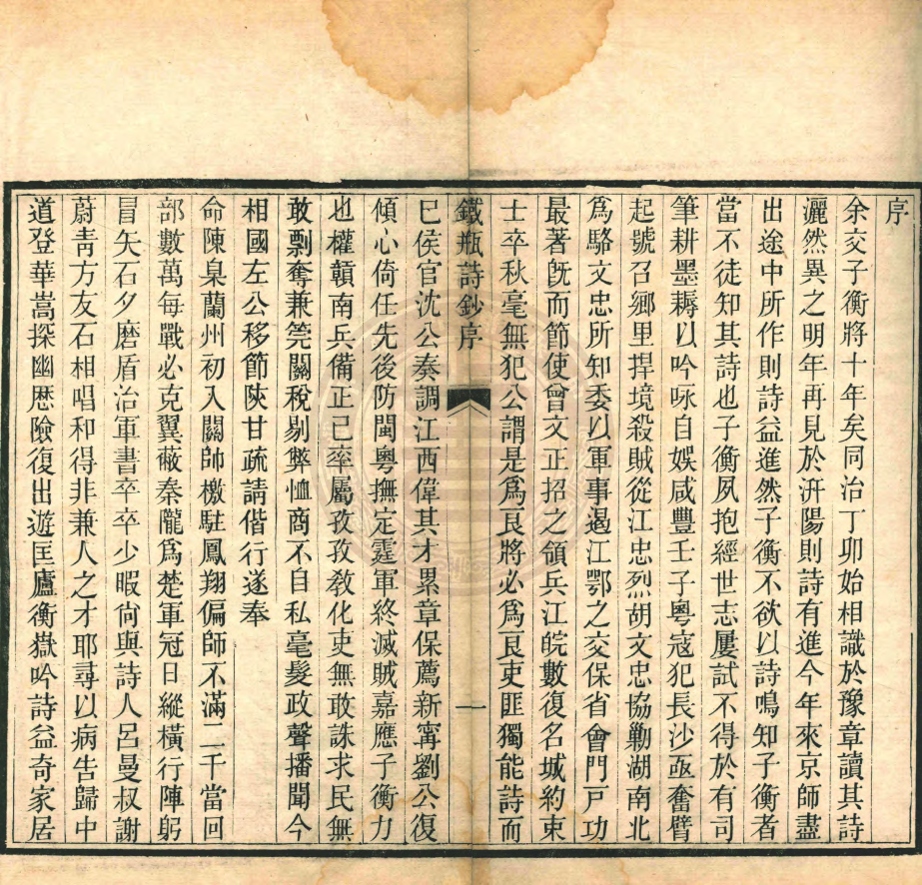 序
余交子衡將十年矣同治丁卯始相識於豫章讀其詩
灑然異之明年再見於汧陽則詩有進今年來京師盡
出途中所作則詩益進然子衡不欲以詩鳴知子衡者
當不徒知其詩也子衡夙抱經世志屢試不得於有司
筆耕墨耨以吟咏自娛咸豐壬子粵寇犯長沙亟奮臂
起號召鄉里捍境殺賊從江忠烈胡文忠協勦湖南北
爲駱文忠所知委以軍事遏江鄂之交保省會門戸功
最著旣而節使曾文正招之領兵江皖數復名城約束
士卒秋毫無犯公謂是爲良將必爲良吏匪獨能詩而
鐵瓶詩鈔序
一
已侯官沈公奏調江西偉其才累章保薦新甯劉公復
傾心倚任先後防閩粵撫定霆軍終滅賊嘉應子衡力
也權贛南兵備正已率屬孜孜敎化吏無敢誅求民無
敢剽奪兼筦關稅剔弊恤商不自私毫髮政聲播聞今
相國左公移節陝甘疏請偕行遂奉
命陳臬蘭州初入關帥檄駐鳳翔偏師不滿二千當回
部數萬每戰必克翼蔽秦隴爲楚軍冠日縱橫行陣躬
冒矢石夕磨盾治軍書卒卒少暇尙與詩人呂曼叔謝
蔚靑方友石相唱和得非兼人之才耶尋以病告歸中
道登華嵩探幽歷險復出遊匡廬衡嶽吟詩益奇家居